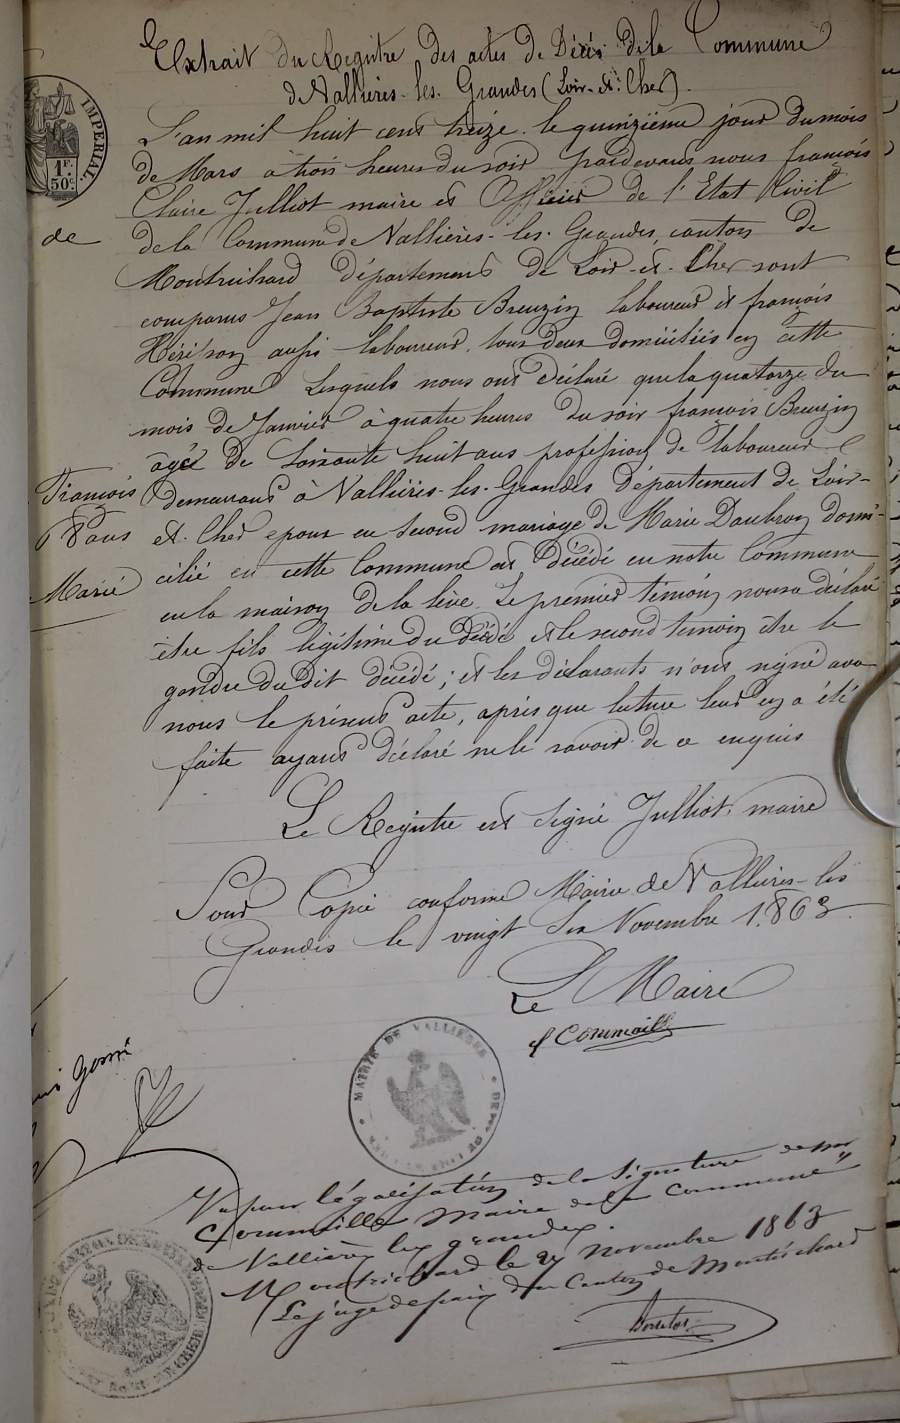 Extrait du Registre des actes de Décès de la Commune
de Vallières-les-Grandes (Loir-et-Cher).
IMPERIAL.
1F.
50c.
L'an mil huit cent treize le quinzième jour du mois
de Mars à trois heures du soir pardevant nous françois
Claire Julliot maire et Officier de l'Etat Civil
de
de la Commune de Vallières-les-Grandes, canton de
Montrichard département de Loir-et-Cher sont
comparus Jean Baptiste Breuzin laboureur et françois
Hérisson aussi laboureur tous deux domiciliés en cette
Commune Lesquels nous ont déclaré que la quatorze du
mois de Janvier à quatre heures du soir françois Breuzin
âgé de soixante huit ans profession de laboureur
François
demeurant à Vallières-les-Grandes département de Loir-
8 ans
et-Cher epoux en second mariage de Marie Daubron domi-
Marié
cilié en cette Commune est décédé en notre Commune
en la maison de la Leve. Le premier témoin nous a déclaré
être fils légitime du décédé et le second temoin être le
gendre du dit décédé; et les déclarants n'ont signé avec
nous le présent acte, après que lecture leur en a été
faite ayant déclaré ne le savoir de ce enquis
Le Registre est signé Julliot, maire
Pour Copie conforme Mairie de Vallières-les
Grandes le vingt six Novembre 1863.
Le Maire
Cormeille
MAIRIE DE VALLIERES
Vu pour légalisation de la signature de mr
Cormeille Maire de la commune
de Vallières les grandes.
Montrichard le 27 novembre 1863
Le juge de paix du canton de Montrichard